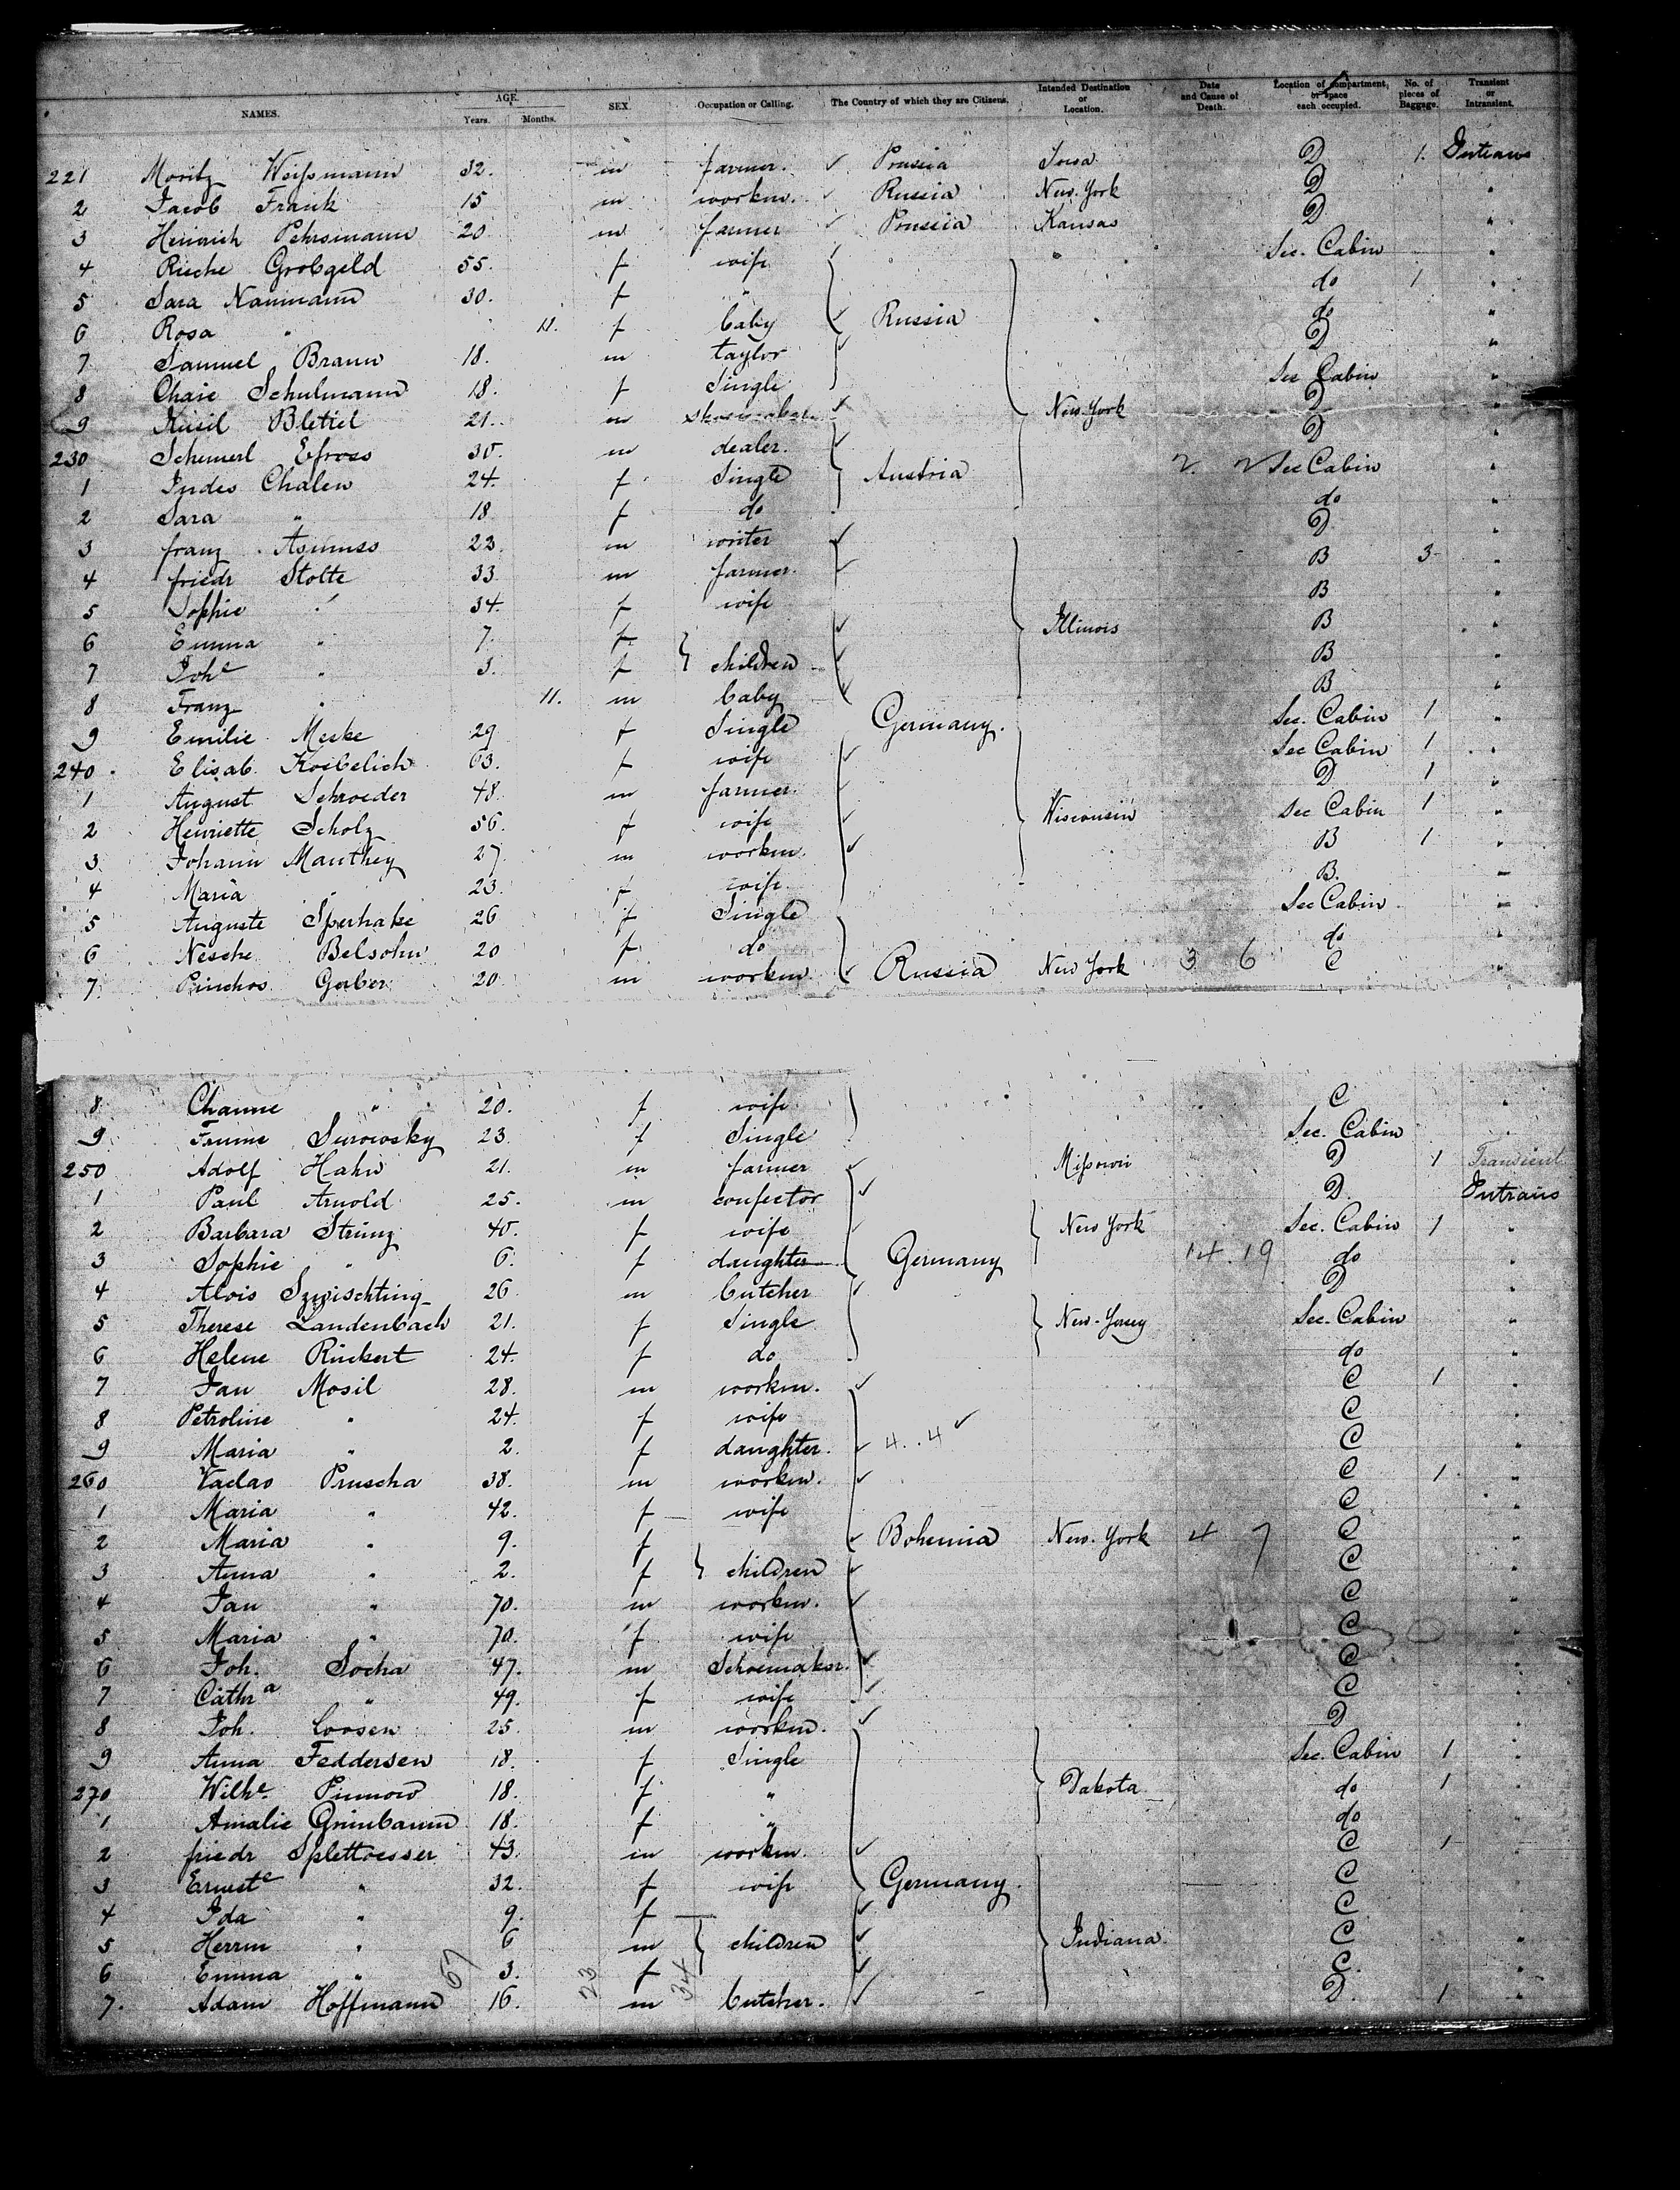 NAMES. AGE. Years. Months. SEX Occupation or Calling. The Country of which they are Citizens. Intended Destination or Location. Date and Cause of Death. Location of compartment, or space each occupied. No. of pieces of Baggage. Transient or Intransient.
221 Moritz Weißmann 32. m farmer. ✓ Prussia Iowa D 1. Intrans
2 Jacob Frank 15 m workm. ✓ Russia New-York D "
3 Heinrich Pehrsmann 20 m farmer ✓ Prussia Kansas D "
4 Rieche Grobgeld 55. f wife " Sec. Cabin "
5 Sara Naumann 30. f " do 1 "
6 Rosa " 11. f baby ✓ Russia " do "
7 Samuel Braun 18. m taylor ✓ D "
8 Chaie Schulmann 18. f Single Sec Cabin "
9 Kusil Blettel 21. m shoemaker ✓ New-York D "
230 Schemerl Efross 30. m dealer. ✓ D "
1 Judes Chalew 24 f Single Austria 2. 2 Sec Cabin "
2 Sara " 18 f do do "
3 franz Asmuss 23. m writer ✓ D "
4 friedr Stolte 33 m farmer. ✓ B 3 "
5 Sophie " 34. f wife B "
6 Emma " 7. f ✓ Illinois B "
7 Johe " 3. f } children ✓ B "
8 Franz " 11. m baby ✓ B "
9 Emilie Meske 29 f Single Germany. Sec. Cabin 1 "
240 Elisab. Koebelich 63. f wife ✓ Sec Cabin 1 "
1 August Schroeder 48. m farmer. ✓ D 1 "
2 Henriette Scholz 56. f wife ✓ Wisconsin Sec Cabin 1 "
3 Johann Manthey 27. m workm. ✓ B 1 "
4 Maria " 23. f wife. B. "
5 Auguste Sperhake 26 f Single Sec Cabin "
6 Nesche Belsohn 20 f do do "
7 Pinchos Gerber 20 m workm. ✓ Russia New York 3 6 C "
8 Channe " 20. f wife C "
9 Surowsky 23. f Single Sec. Cabin "
250 Adolf Hahn 21. m farmer ✓ Mißouri D 1 Transient
1 Paul Arnold 25. m confector ✓ D. Intrans
2 Barbara Strunz 40. f wife New York Sec. Cabin 1 "
3 Sophie " 6. f daughter Germany 14. 19 do "
4 Alois Szwischting 26 m butcher ✓ D "
5 Therese Landenbach 21. f Single New-Jersey Sec. Cabin "
6 Helene Rinkert 24. f do do "
7 Jan Mosil 28. m workm. ✓ C 1 "
8 Petroline " 24. f wife C "
9 Maria " 2. f daughter. ✓ 4. . 4 ✓ C "
260 Vaclav Pruscha 38. m workm. ✓ C 1. "
1 Maria " 42. f wife C "
2 Maria " 9. f ✓ Bohemia New-York 4 7 C "
3 Anna " 2. f } children ✓ C "
4 Jan " 70. m workm. ✓ C "
5 Maria " 70. f wife C "
6 Joh. Socha 47. m Schoemaker. ✓ C "
7 Cathra " 49. f wife ✓ C "
8 Joh. Loosen 25. m workm. ✓ D "
9 Anna Feddersen 18. f Single Sec. Cabin 1 "
270 Wilhe Pinnow 18. f " Dakota do 1 "
1 Amalie Grünbaum 18. f " do "
2 friedr Splettoesser 43. m workm. ✓ C 1 "
3 Ernste " 32. f wife Germany. C "
4 Ida " 9. f ✓ C "
5 Herrm " 6 m } children ✓ Indiana. C "
6 Emma " 3. f ✓ C. "
7. Adam Hoffmann 16. m butcher. ✓ D. 1 "
57 23 34